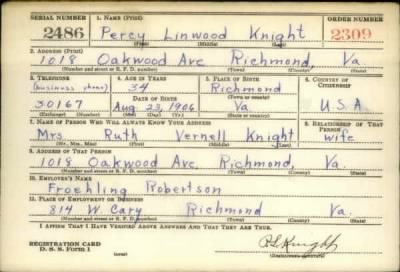 SERIAL NUMBER 1. NAME (Print) ORDER NUMBER
2486 Percy Linwood Knight 2309
(First) (Middle) (Last)
2. ADDRESS (Print)
1018 Oakwood Ave Richmond, Va.
(Number and street or R. F. D. number) (Town) (County) (State)
3. TELEPHONE 4. AGE IN YEARS 5. PLACE OF BIRTH 6. COUNTRY OF CITIZENSHIP
(business phone) 34 Richmond
DATE OF BIRTH (Town or county)
30167 Aug 23, 1906 Va. USA
(Exchange) (Number) (Mo.) (Day) (Yr.) (State or country)
7. NAME OF PERSON WHO WILL ALWAYS KNOW YOUR ADDRESS 8. RELATIONSHIP OF THAT PERSON
Mrs Ruth Vernell Knight wife
(Mr., Mrs., Miss) (First) (Middle) (Last)
9. ADDRESS OF THAT PERSON
1018 Oakwood Ave Richmond, Va.
(Number and street or R. F. D. number) (Town) (County) (State)
10. EMPLOYER'S NAME
Froehling Robertson
11. PLACE OF EMPLOYMENT OR BUSINESS
814 W. Cary Richmond Va.
(Number and street or R. F. D. number) (Town) (County) (State)
I AFFIRM THAT I HAVE VERIFIED ABOVE ANSWERS AND THAT THEY ARE TRUE.
REGISTRATION CARD
D. S. S. Form 1
P L Knight
(Registrant's signature)